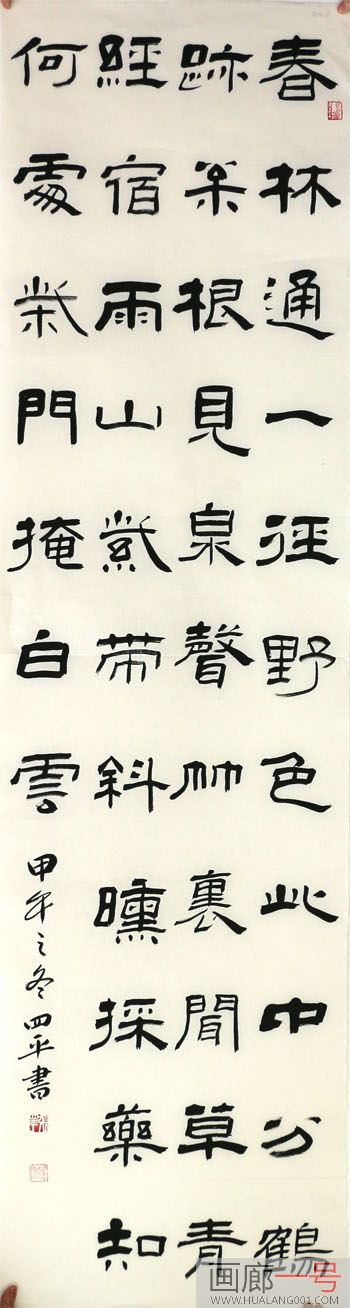 春林通一徑野色此中分鶴
跡枀根見泉聲竹裏聞草青
經宿雨山紫带斜曛採藥知
何處柴門掩白雲
甲午之冬四平書
画廊一号
WWW.HUALANG001.COM